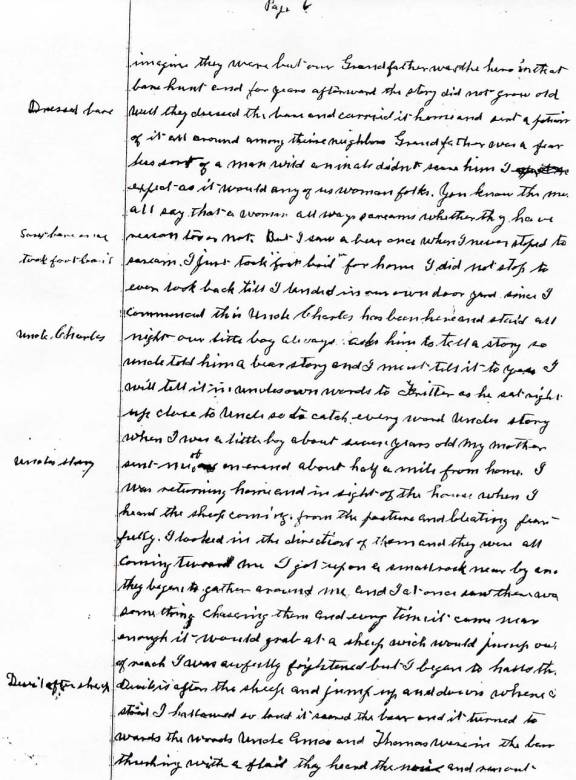 Page 6
imagine they were but our Grandfather was the hero in that
bare hunt and for years afterward the story did not grow old
Dressed bare
well they dressed the bare and carried it home and sent a potion
of it all around among their neighbors Grandfather was a fear
less sort of a man wild animals didn't scare him I
expect as it would any of us woman folks. You know the men
all say that a woman all ways screams whether thy have
Saw bare once
reason to or not. But I saw a bear once when I never stoped to
took foot bail
scream. I Just took "foot bail" for home I did not stop to
even look back till I landed in our own door yard since I
commenced this Uncle Charles has been here and staid all
Uncle Charles
night our little boy always asks him to tell a story so
uncle told him a bear story and I must tell it to you I
will tell it in uncles own words to Fritter as he sat right
up close to Uncle so to catch every word Uncles story
when I was a little boy about seven years old my mother
Uncles story
sent me on an errand about half a mile from home. I
was returning home and in sight of the house when I
heard the sheep coming from the pasture and bleating fear-
fully. I looked in the direction of them and they were all
coming toward me I got upon a small rock near by and
they began to gather around me and I at once saw there was
something chaseing them and evry time it came near
enough it would grab at a sheep wich would jump out
of reach I was awfully frightened but I began to hallo the
Devil after sheep
Devil is after the sheep and jump up and down where I
stood I hallowed so loud it scared the bear and it turned to
wards the woods Uncle Amos and Thomas were in the barn
threshing with a flail they heard the noise and ran out-